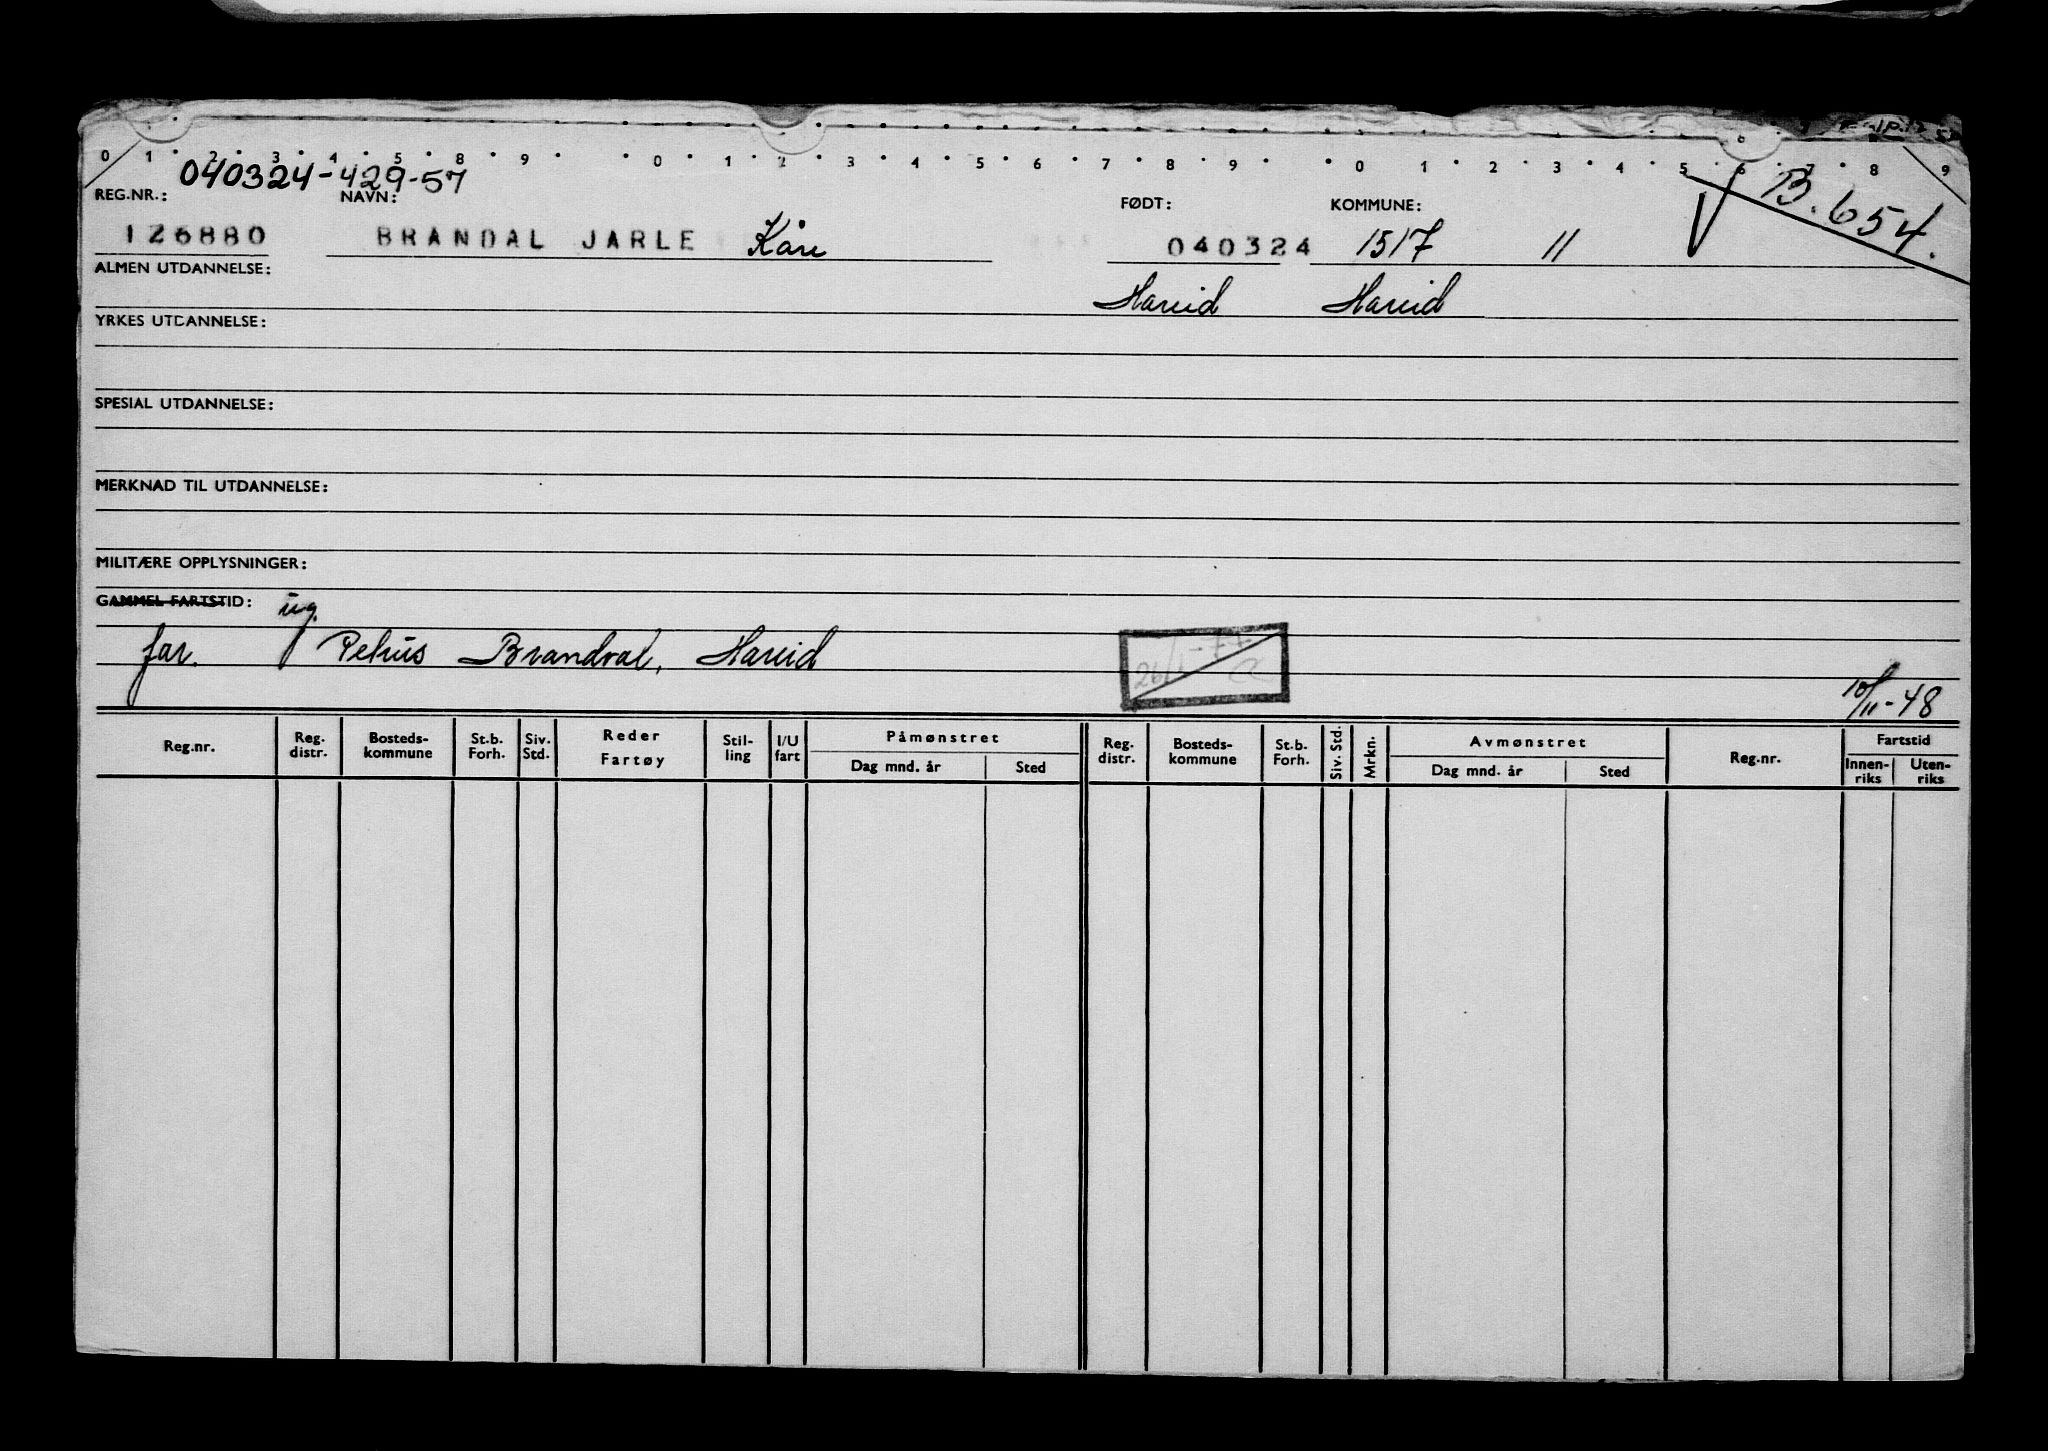 0 1 2 3 4 5 8 9 0 1 2 3 4 5 6 7 8 9 0 1 2 3 4 5 6 7 8 9
040324-429-57
B.654.
REG.NR.: NAVN: FØDT: KOMMUNE:
126880 BRANDAL JARLE Kåre 040324 1517 11
ALMEN UTDANNELSE:
Hareid Hareid
YRKES UTDANNELSE:
SPESIAL UTDANNELSE:
MERKNAD TIL UTDANNELSE:
MILITÆRE OPPLYSNINGER:
GAMMEL FARTSTID: ug.
far. Petrus Brandal, Hareid
10/11-48
Reg.nr. Reg. distr. Bosteds-kommune St.b. Forh. Siv. Std. Reder Fartøy Stil-ling I/U fart Påmønstret Dag mnd. år Sted Reg. distr. Bosteds-kommune St.b. Forh. Siv. Std. Mrkn. Avmønstret Dag mnd. år Sted Reg.nr. Fartstid Innen-riks Uten-riks